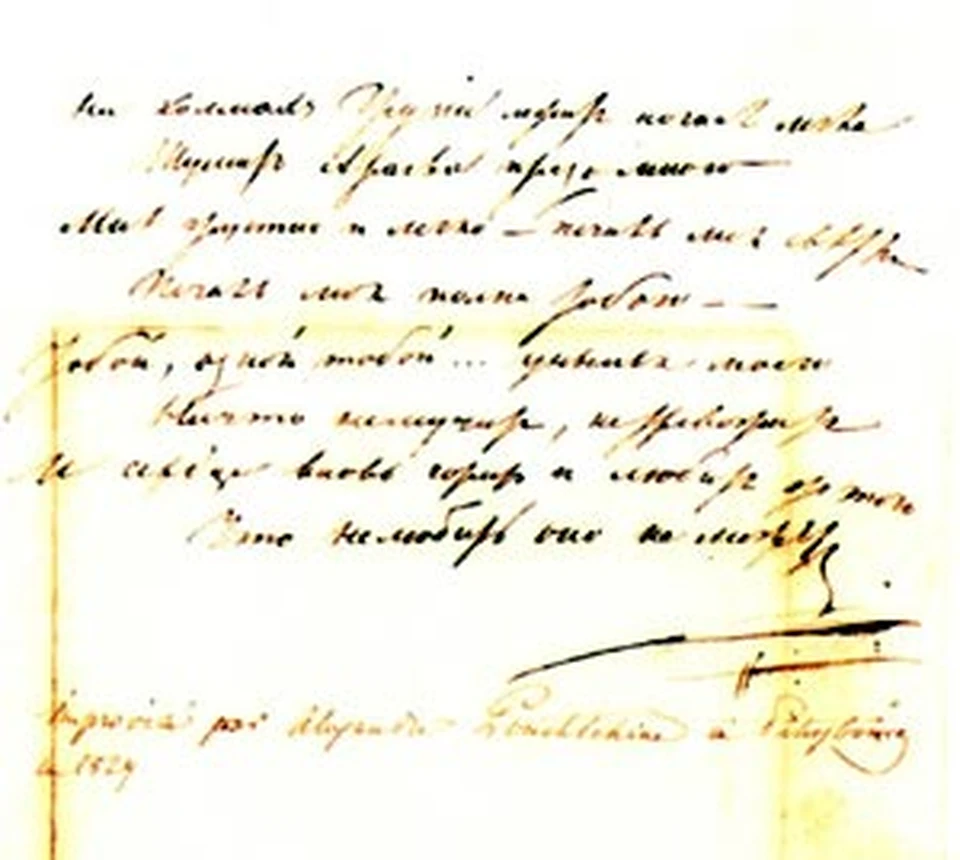 На холмахъ Грузіи лежитъ ночная мгла
Шумитъ Арагва предо мною —
Мнѣ грустно и легко — печаль моя свѣтла
Печаль моя полна тобою —
Тобой, одной тобой... унынья моего
Ничто немучитъ, нетревожитъ
И сердце вновь горитъ и любитъ отъ того
Что нелюбить оно не можетъ
improvisé par Alexandre Pouchkine à Pétersbourg
1829